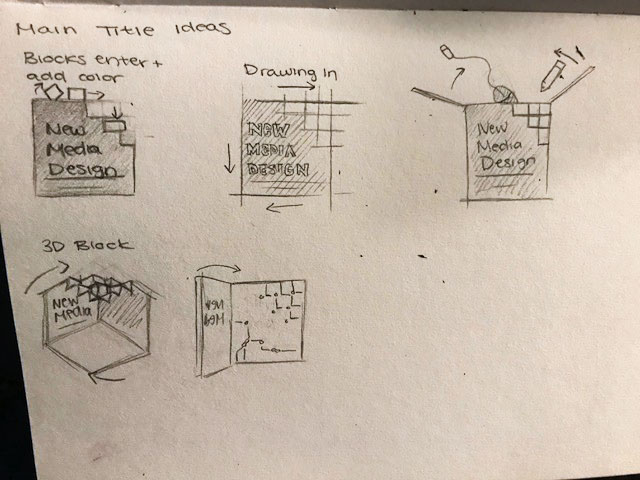 Main Title Ideas
Blocks enter +
add color
New
Media
Design
Drawing In
NEW
MEDIA
DESIGN
New
Media
Design
3D Block
New
Media
New
Med